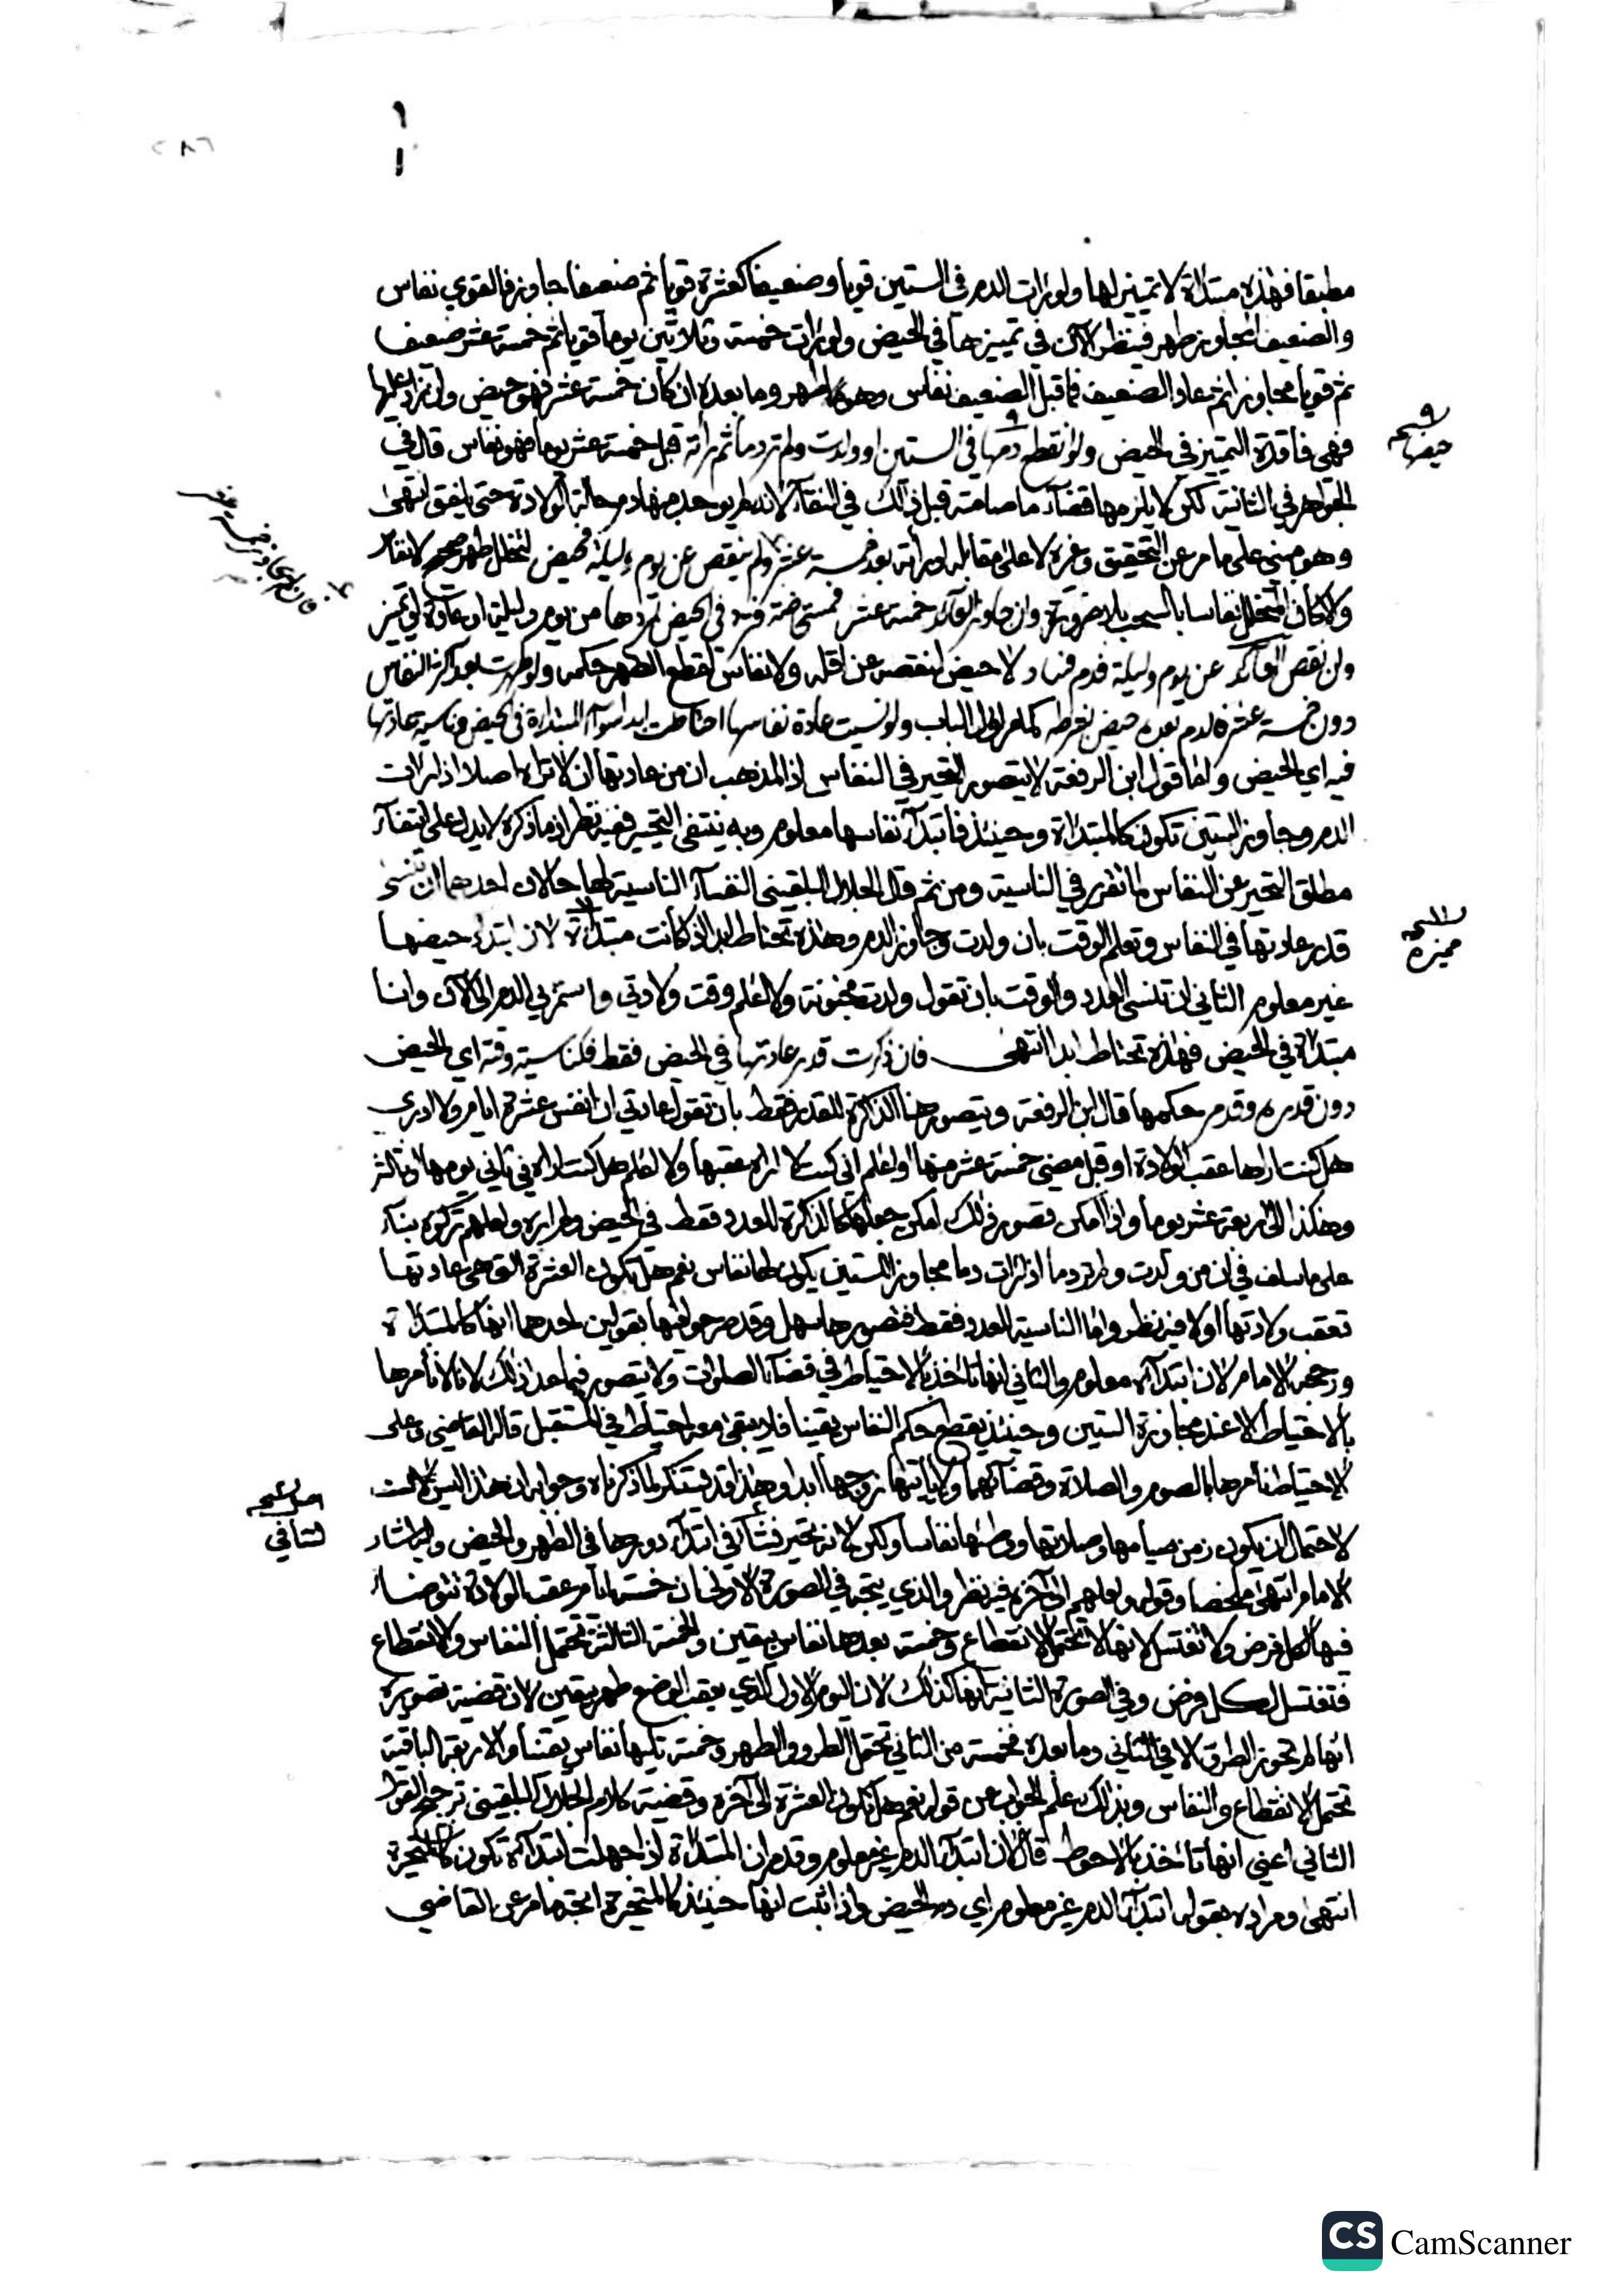 ٢٨٦
١
١
مطبقا فهذه مبتدأة لا تمييز لها ولو رات الدم في الستين قويا وضعيفا كعشرة قويا ثم ضعيفا جاوز فالقوي نفاس
والضعيف المجاوز طهر فينظر الآن في تمييزها في الحيض ولو رات خمسة وثلاثين يوما قويا ثم خمسة عشر ضعيف
ثم قويا مجاوزا ثم عاد الضعيف فما قبل الضعيف نفاس وهو طهر وما بعده ان كان خمسة عشر فهو حيض وان زاد عليها
فهي فاقدة التمييز في الحيض ولو انقطع دمها في الستين او ولدت ولم تر دما ثم راته قبل خمسة عشر يوما فهو نفاس قال في
الجواهر في الثانية لكن لا يلزمها قضاء ما صامته قبل ذلك في النقاء لانه لم يوجد منها دم حالة الولادة حتى يلفق انتهى
وهو مبني على ما مر عن التحقيق وغيره لا على مقابله او راته بعد خمسة عشر ولم ينقص عن يوم وليلة فحيض لتخلل طهر صحيح لا نفاس
والا كان المتخلل نفاسا بالسحب بلا ضرورة وان جاوز العائد خمسة عشر فمستحاضة فترد في الحيض لمردها من يوم وليلة او عادة او تمييز
وان نقص العائد عن يوم وليلة فدم فساد لا حيض لنقصه عن اقله ولا نفاس لقطع الطهر حكمه ولو طهرت بعد اكثر النفاس
دون خمسة عشر فالدم بعده حيض بشرطه كما مر اول الباب ولو نسيت عادة نفاسها احتاطت ابدا سوآء المبتدأة في الحيض وناسية عادتها
فيه اي الحيض واما قول ابن الرفعة لا يتصور التحير في النفاس اذ المذهب ان من عادتها ان لا تراه اصلا اذا رات
الدم وجاوز الستين تكون كالمبتدأة وحينئذ فابتدآء نفاسها معلوم وبه ينتفي التحير ففيه نظر اذ ما ذكره لا يدل على انتفاء
مطلق التحير عن النفاس لما تقرر في الناسية ومن ثم قال الجلال البلقيني النفسآء الناسية لها حالان احدهما ان تنسى
قدر عادتها في النفاس وتعلم الوقت بان ولدت وجاوز الدم وهذه تحتاط ابدا اذ كانت مبتدأة لان ابتداء حيضها
غير معلوم الثاني ان تنسى العدد والوقت بان تقول ولدت مجنونة ولا اعلم وقت ولادتي واستمر بي الدم الى الآن وانا
مبتدأة في الحيض فهذه تحتاط ابدا انتهى فان ذكرت قدر عادتها في الحيض فقط فكناسية وقته اي الحيض
دون قدره وقد مر حكمها قال ابن الرفعة ويتصور هنا الذاكرة للقدر فقط بان تقول عادتي ان انفس عشرة ايام ولا ادري
هل كنت اراها عقب الولادة او قبل مضي خمسة عشر منها او اعلم اني كنت لا اراه عقبها ولا اعلم هل كنت اراه في ثاني يومها او ثالثه
وهكذا الى اربعة عشر يوما واذا امكن تصور ذلك امكن جعلها كالذاكرة للعدد فقط في الحيض ولم اره ولعلهم تركوه بناء
على ما سلف في ان من ولدت ولم تر دما اذا رات دما مجاوز الستين يكون لها نفاس نعم هل تكون العشرة التي هي عادتها
تعقب ولادتها او لا فيه نظر واما الناسية للعدد فقط فتصورها سهل وقد صرحوا فيها بقولين احدهما انها كالمبتدأة
ورجحه الامام لان ابتدآءه معلوم والثاني انها تاخذ بالاحتياط في قضآء الصلوات ولا يتصور فيما عدا ذلك لانا لا نأمرها
بالاحتياط الا عند مجاوزة الستين وحينئذ يقطع حكم النفاس يقينا فلا يبقى معه احتياط في المستقبل قال القاضي وعلى
الاحتياط نأمرها بالصوم والصلاة وقضآئهما ولا يأتيها زوجها ابدا وهذا قد يستنكر لما ذكرناه وجوابه ان هذا ليس
لاحتمال ان يكون زمن صيامها وصلاتها ووطئها نفاسا ولكن لانه تحير نشأ في ابتدآء دورها في الطهر والحيض واليه اشار
الامام انتهى ملخصا وقوله ولعلهم الى آخره فيه نظر والذي يتجه في الصورة الاولى ان خمسة ايام عقب الولادة تتوضأ
فيها لكل فرض ولا تغتسل لانها لا تحتمل الانقطاع وخمسة بعدها نفاس بيقين والخمسة الثالثة تحتمل النفاس والانقطاع
فتغتسل لكل فرض وفي الصورة الثانية انها كذلك لان اليوم الاول الذي يعقب الوضع طهر بيقين لان قضية تصويره
انها لم تجوز الطرو الا في الثاني وما بعده فخمسة من الثاني تحتمل الطرو والطهر وخمسة تليها نفاس يقينا والاربعة الباقية
تحتمل الانقطاع والنفاس وبذلك علم الجواب عن قوله نعم هل تكون العشرة الى آخره وقضية كلام الجلال البلقيني ترجيح القول
الثاني اعني انها تاخذ بالاحوط قال لان ابتدآء الدم غير معلوم وقد مر ان المبتدأة اذا جهلت ابتدآءه تكون كالمتحيرة
انتهى ومراده بقوله ابتدآء الدم غير معلوم اي دم الحيض واذا ثبت انها حينئذ كالمتحيرة اتجه ما مر عن القاضي
حيضها
مميزة
الشافي
CS CamScanner